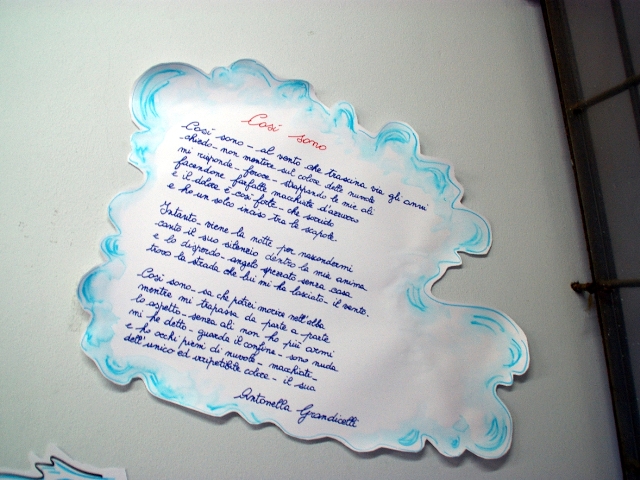 Così sono
Così sono - al vento che trascina via gli anni
chiedo - non mentire sul colore delle nuvole
mi risponde - feroce - strappando le mie ali
facendone farfalle macchiate d'azzurro
e il dolore è così forte - che sorrido
e ho un solco inciso tra le scapole.
Intanto - viene la notte per nascondermi
canta il suo silenzio dentro la mia anima
e lo disperdo - angelo spezzato senza casa
trovo la strada che lui mi ha lasciato - il vento.
Così sono - sa che potrei morire nell'alba
mentre mi trapassa da parte a parte
lo aspetto - senza ali non ho più armi
mi ha detto - guarda il confine - sono nuda
e ho occhi pieni di nuvole - macchiati -
dell'unico ed irripetibile colore - il suo
Antonella Grandicelli